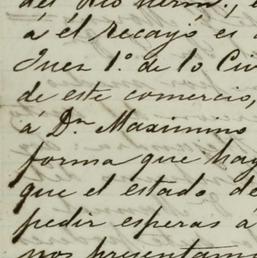 del Rio
á él recayó es
Juez 1º. de lo Civ
de este comercio,
á Dn Maximino
forma que hay
que el estado de
pedir esperas á
nos presentam